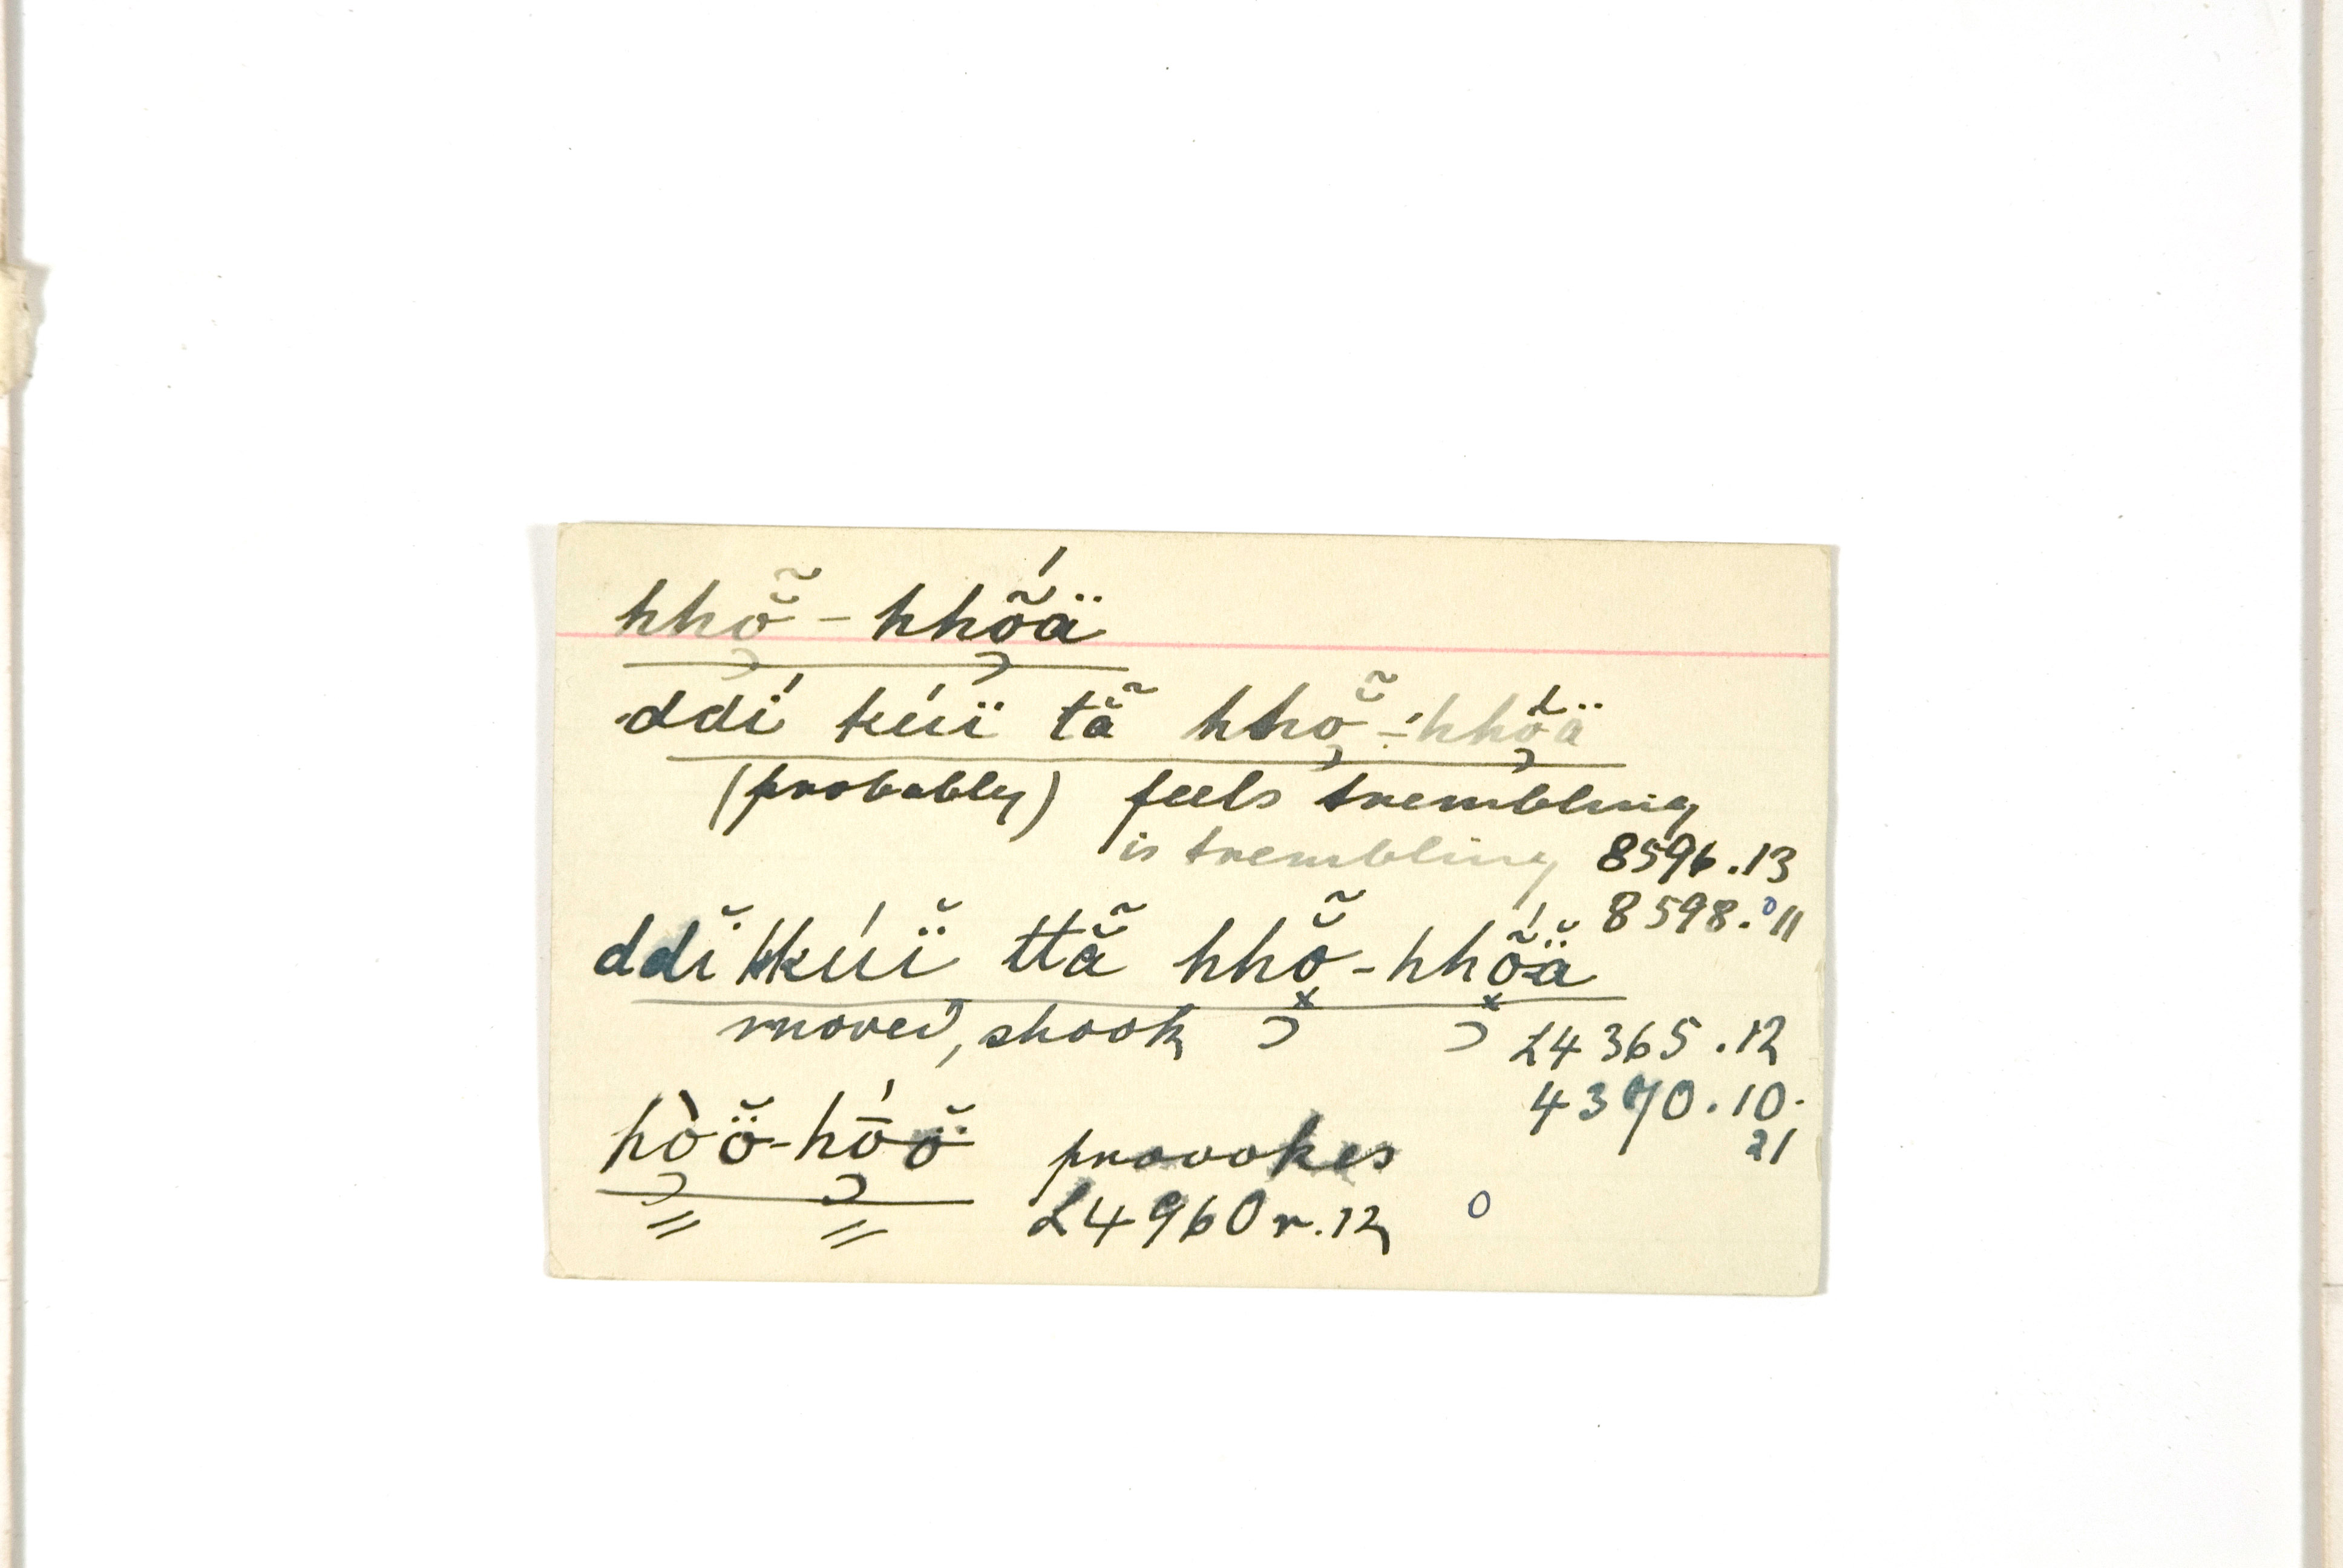 hhõ̆ - hhõ̆́ä
ddí kúï tã̆ hhõ̆ - hhõ̆́ä
(probably) feels trembling
is trembling 8596.13
8598.11
ddĭ kkúï̆ ttã̆ hhõ̆ - hhṍä̆
moved, shook L4365.12
4370.10.
21
hòö̆-hṓö̆ provokes
L4960r.12